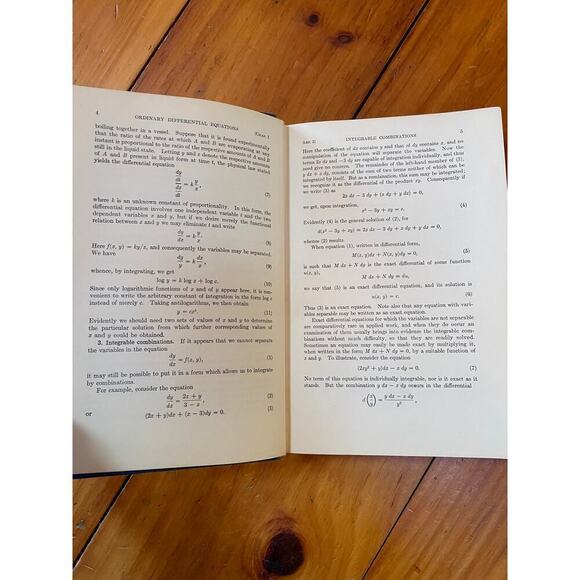 4 ORDINARY DIFFERENTIAL EQUATIONS [CHAP. I
boiling together in a vessel. Suppose that it is found experimentally
that the ratio of the rates at which A and B are evaporating at any
instant is proportional to the ratio of the respective amounts of A and B
still in the liquid state. Letting y and x denote the respective amounts
of A and B present in liquid form at time t, the physical law stated
yields the differential equation
dy/dt / dx/dt = k y/x,
where k is an unknown constant of proportionality. In this form, the
differential equation involves one independent variable t and the two
dependent variables x and y, but if we desire merely the functional
relation between x and y we may eliminate t and write
dy/dx = k y/x. (8)
Here f(x, y) = ky/x, and consequently the variables may be separated.
We have
dy/y = k dx/x, (9)
whence, by integrating, we get
log y = k log x + log c. (10)
Since only logarithmic functions of x and of y appear here, it is con-
venient to write the arbitrary constant of integration in the form log c
instead of merely c. Taking antilogarithms, we then obtain
y = cxᵏ. (11)
Evidently we should need two sets of values of x and y to determine
the particular solution from which further corresponding values of
x and y could be obtained.
3. Integrable combinations. If it appears that we cannot separate
the variables in the equation
dy/dx = f(x, y), (1)
it may still be possible to put it in a form which allows us to integrate
by combinations.
For example, consider the equation
dy/dx = 2x + y / 3 − x, (2)
or (2x + y)dx + (x − 3)dy = 0. (3)
INTEGRABLE COMBINATIONS 5
Here the coefficient of dx contains y and that of dy contains x, and no
manipulation of the equation will separate the variables. Now the
terms 2x dx and −3 dy are capable of integration individually, and thus
need give no concern. The remainder of the left-hand member of (3),
y dx + x dy, consists of the sum of two terms neither of which can be
integrated by itself. But as a combination, this sum may be integrated;
we recognize it as the differential of the product xy. Consequently if
we write (3) as
2x dx − 3 dy + (x dy + y dx) = 0,
we get, upon integration,
x² − 3y + xy = c. (4)
Evidently (4) is the general solution of (2), for
d(x² − 3y + xy) = 2x dx − 3 dy + x dy + y dx = 0,
whence (2) results.
When equation (1), written in differential form,
M(x, y)dx + N(x, y)dy = 0, (5)
is such that M dx + N dy is the exact differential of some function
u(x, y),
M dx + N dy = du,
we say that (5) is an exact differential equation, and its solution is
u(x, y) = c. (6)
Thus (3) is an exact equation. Note also that any equation with vari-
ables separable may be written as an exact equation.
Exact differential equations for which the variables are not separable
are comparatively rare in applied work, and when they do occur an
examination of them usually brings into evidence the integrable com-
binations without much difficulty, so that they are readily solved.
Sometimes an equation may easily be made exact by multiplying it,
when written in the form M dx + N dy = 0, by a suitable function of
x and y. To illustrate, consider the equation
(2xy² + y)dx − x dy = 0. (7)
No term of this equation is individually integrable, nor is it exact as it
stands. But the combination y dx − x dy occurs in the differential
d(x/y) = y dx − x dy / y²,